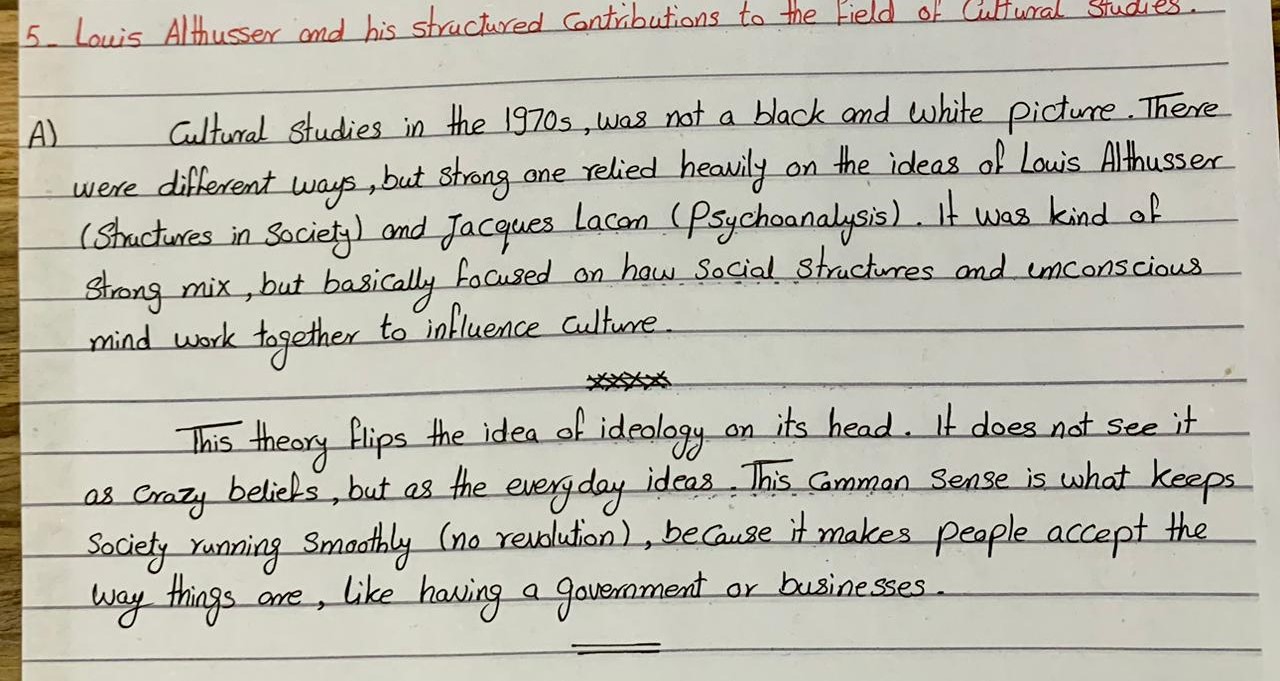 5- Louis Althusser and his structured Contributions to the Field of Cultural Studies.
A) Cultural Studies in the 1970s, was not a black and white picture. There
were different ways, but strong one relied heavily on the ideas of Louis Althusser
(Structures in Society) and Jacques Lacan (Psychoanalysis). It was kind of
strong mix, but basically focused on how social structures and unconscious
mind work together to influence culture.
This theory flips the idea of ideology on its head. It does not see it
as crazy beliefs, but as the everyday ideas. This Common Sense is what keeps
Society running smoothly (no revolution), because it makes people accept the
way things are, like having a government or businesses.